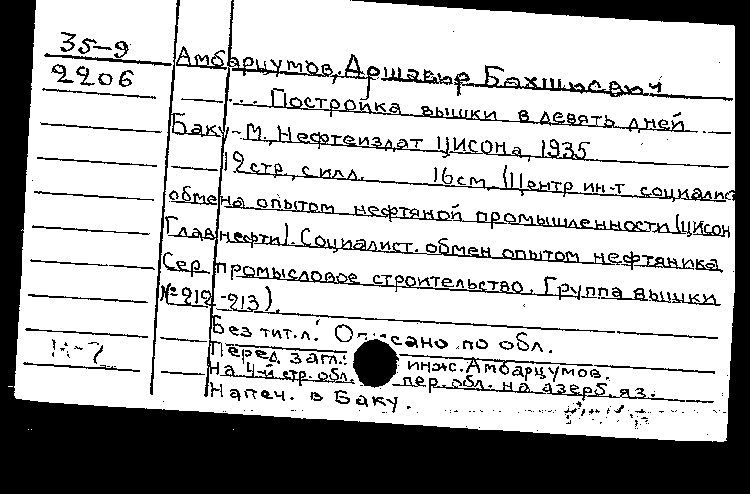 35-9
2206
Амбарцумов, Аршавир Бахшиевич
... Постройка вышки в девять дней
Баку-М., Нефтеиздат ЦИСОНа, 1935
19 стр, с илл. 16см (Центр ин-т социалис
обмена опытом нефтяной промышленности (ЦИСОН
Главнефти). Социалист. обмен опытом нефтяника
Сер промысловое строительство. Группа вышки
№ 212-213).
Без тит.л. Описано по обл.
Перед загл.: инж. Амбарцумов.
На 4-й стр. обл. пер. обл. на азерб. яз.
Напеч. в Баку.